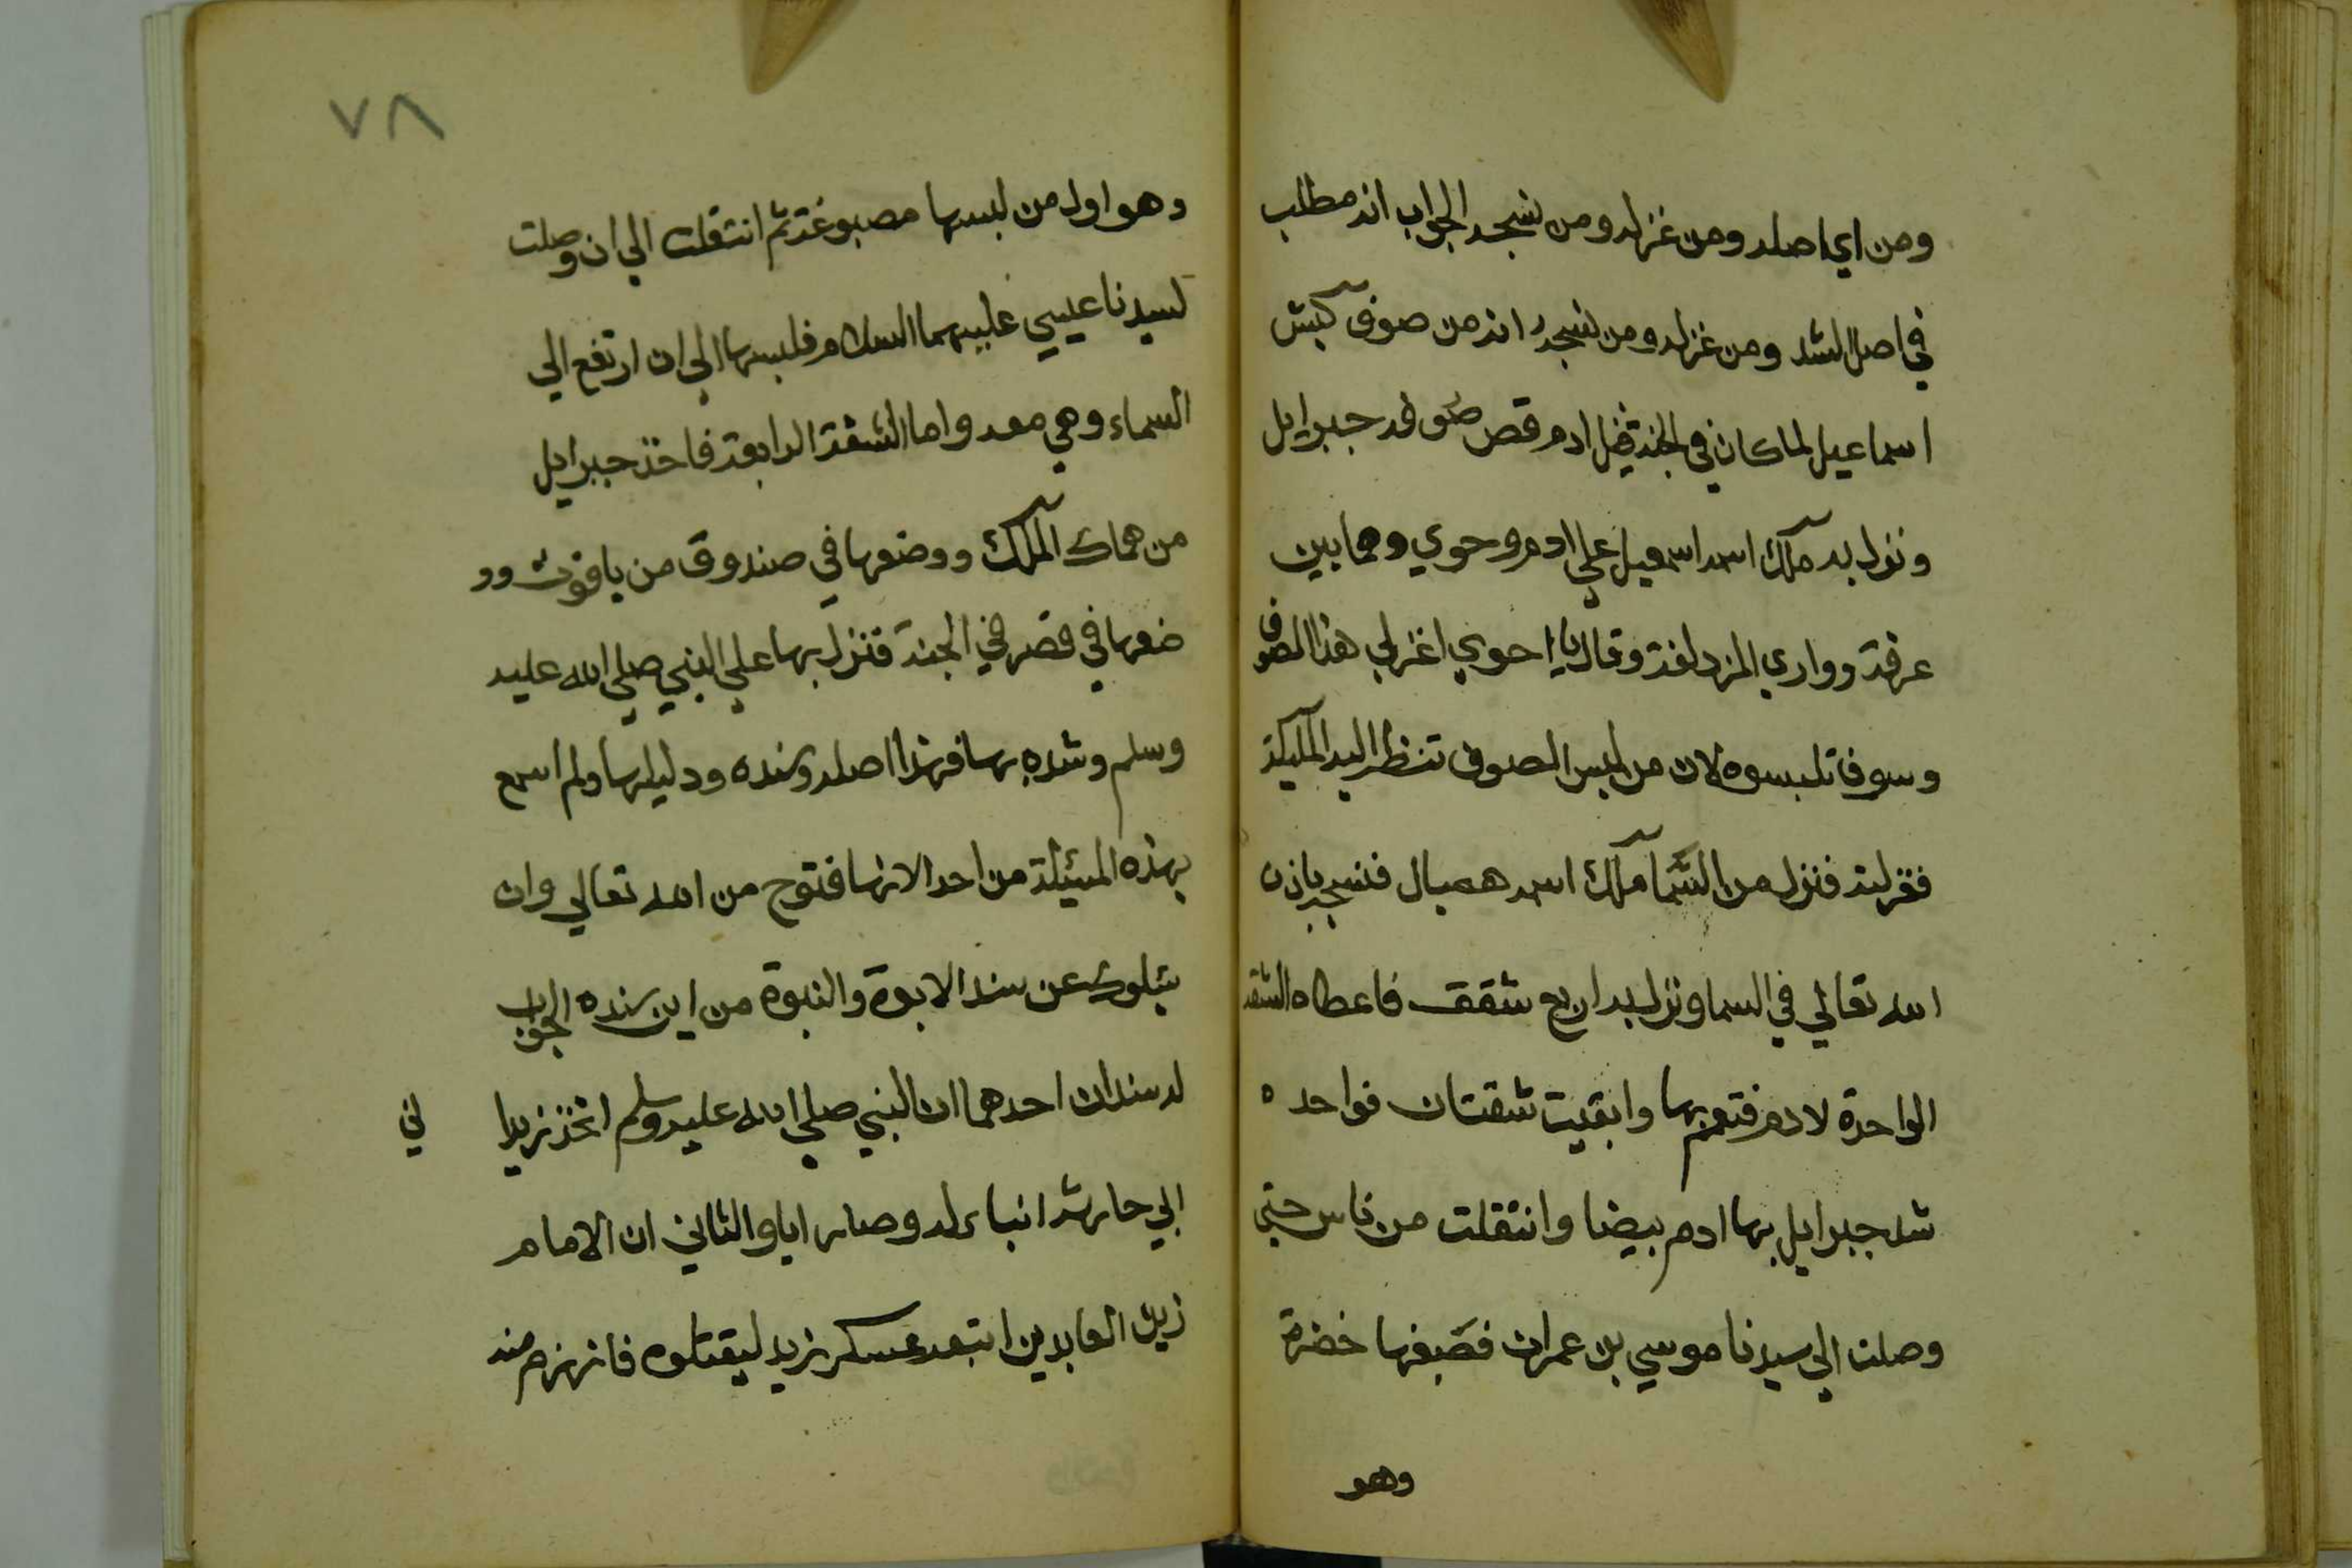 ومن اي اصله ومن غزله ومن نسجه الجواب انه مطلب
في اصل الشد ومن غزله ومن نسجه انه من صوف كبش
اسماعيل لما كان في الجنة قبل ادم قص صوفه جبرايل
ونزل به ملك اسمه اسمعيل علي ادم وحوي وهما بين
عرفة ووادي المزدلفة وقال يا حوي اغزلي هذا الصوف
وسوف تلبسوه لان من لبس الصوف تنظر اليه المليكة
فغزلته فنزل من السما ملك اسمه هميال فنسجه باذن
الله تعالي في السما ونزل به اربع شقق فاعطاه الشقة
الواحدة لادم فتعمم بها وابقيت شقتان فواحده
شد جبرايل بها ادم بيضا وانتقلت من ناس حتي
وصلت الي سيدنا موسي بن عمران فصبغها خضرة
وهو
٧٨
وهو اول من لبسها مصبوغة ثم انتقلت الي ان وصلت
لسيدنا عيسي عليهما السلام فلبسها الي ان ارتفع الي
السماء وهي معه واما الشقة الرابعة فاخذ جبرايل
من هماك الملك ووضعها في صندوق من ياقوت وو
ضعها في قصر في الجنة فنزل بها علي النبي صلي الله عليه
وسلم وشده بها فهذا اصله وسنده ودليلها ولم اسمع
بهذه المسئلة من احد الا انها فتوح من الله تعالي وان
سئلوك عن سند الابوة والنبوة من اين سنده الجواب
له سندان احدهما ان النبي صلي الله عليه وسلم اتخذ زيدا
ابي حارثة انباء له وصار ابا والثاني ان الامام
زين العابدين اتبعه عسكر يزيد ليقتلوه فانهزم منه